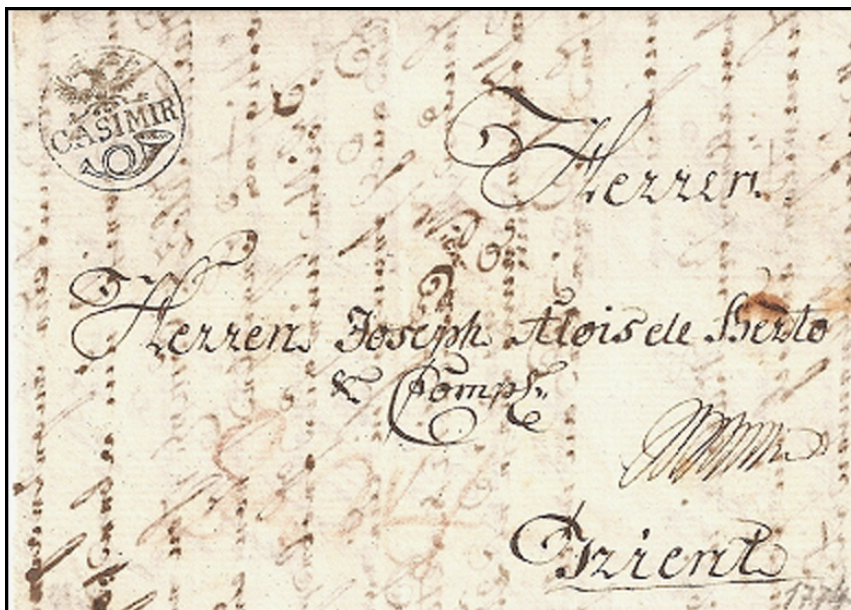 CASIMIR
Herren
Herren Joseph Alois de Berto
& Comp:
Trient